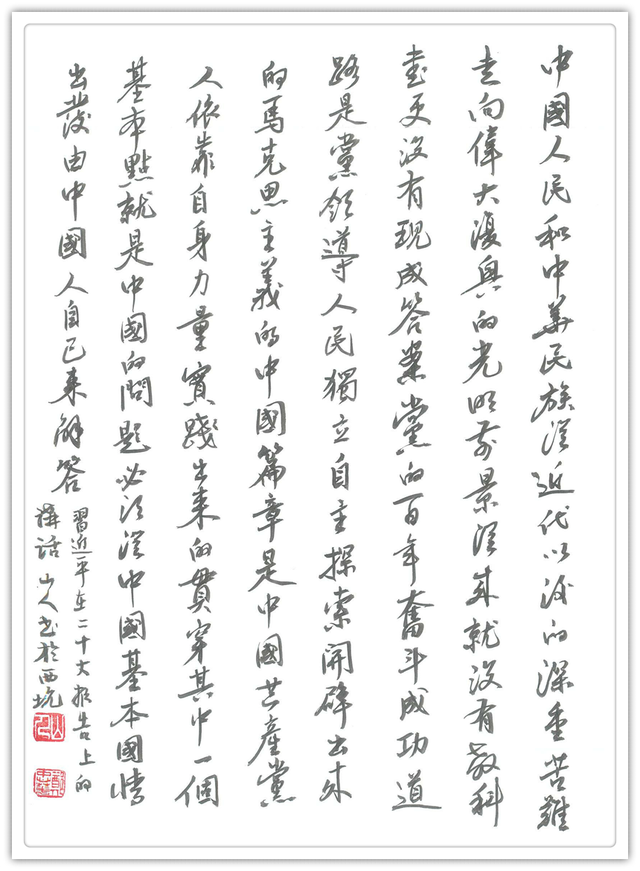 中國人民和中華民族從近代以後的深重苦難
走向偉大復興的光明前景從來就沒有教科
書更沒有現成答案黨的百年奮斗成功道
路是黨領導人民獨立自主探索開辟出來
的馬克思主義的中國篇章是中國共產黨
人依靠自身力量實踐出來的貫穿其中一個
基本點就是中國的問題必須從中國基本國情
出發由中國人自己來解答
習近平在二十大报告上的
講話 山人书於西坑